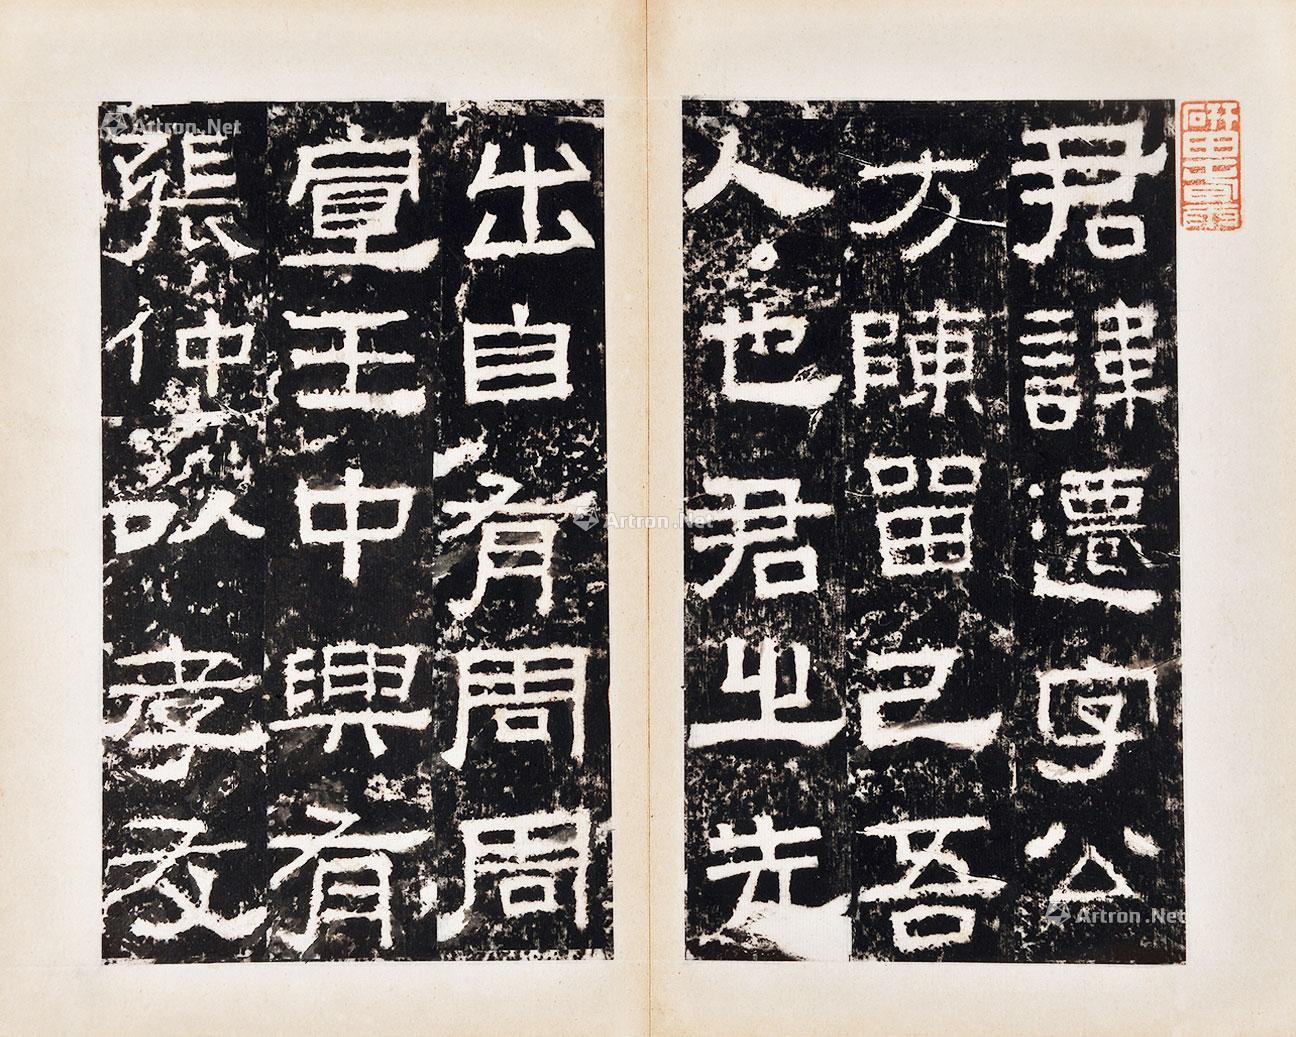 君諱遷字公
方陳留己吾
人也君之先
出自有周周
宣王中興有
張仲以孝友
Artron.Net
Artron.Net
Artron.Net